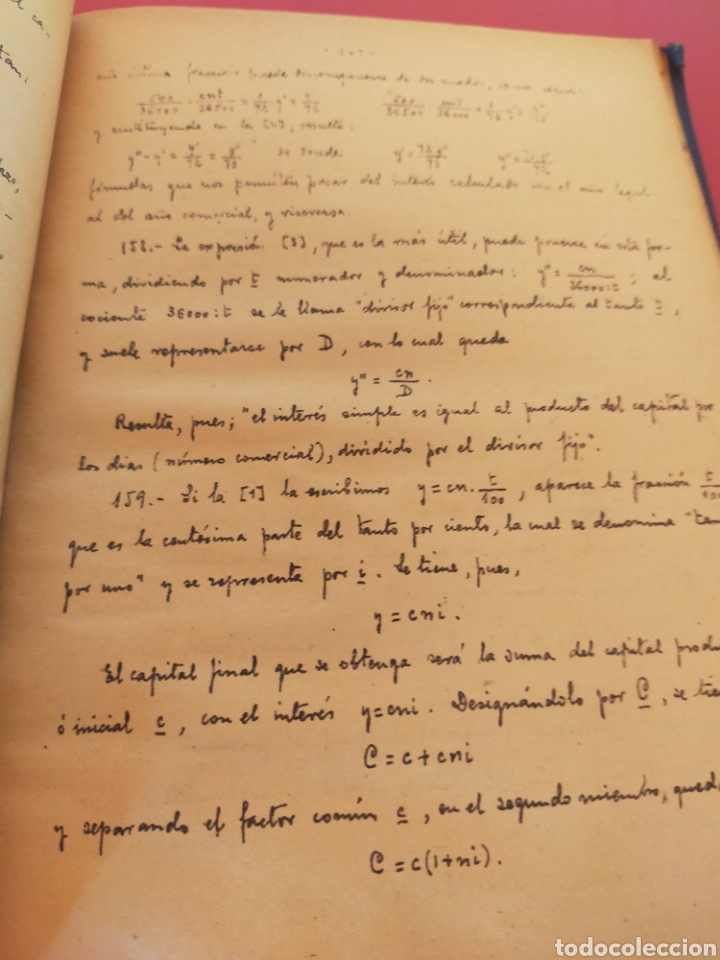 fracción puede descomponerse de dos modos, como sigue:
y sustituyendo en la [2], resulta:
de donde
fórmulas que nos permiten pasar del interés calculado con el año
al del año comercial, y viceversa.
158.- La expresión [3], que es la más útil, puede ponerse en esta for-
ma, dividiendo por t numerador y denominador: y" = cn/36000:t ; al
cociente 36000:t se le llama "divisor fijo" correspondiente al tanto t,
y suele representarse por D, con lo cual queda
y" = cn/D.
Resulta, pues; "el interés simple es igual al producto del capital por
los dias (número comercial), dividido por el divisor fijo".
159.- Si la [1] la escribimos y = cn. t/100, aparece la fracción t/100
que es la centésima parte del tanto por ciento, la cual se denomina "tan
por uno" y se representa por i. Se tiene, pues,
y = cni.
El capital final que se obtenga será la suma del capital produ
ó inicial c, con el interés y = cni. Designándolo por C, se tien
C = c + cni
y separando el factor común c, en el segundo miembro, queda
C = c(1+ni).
todocoleccion